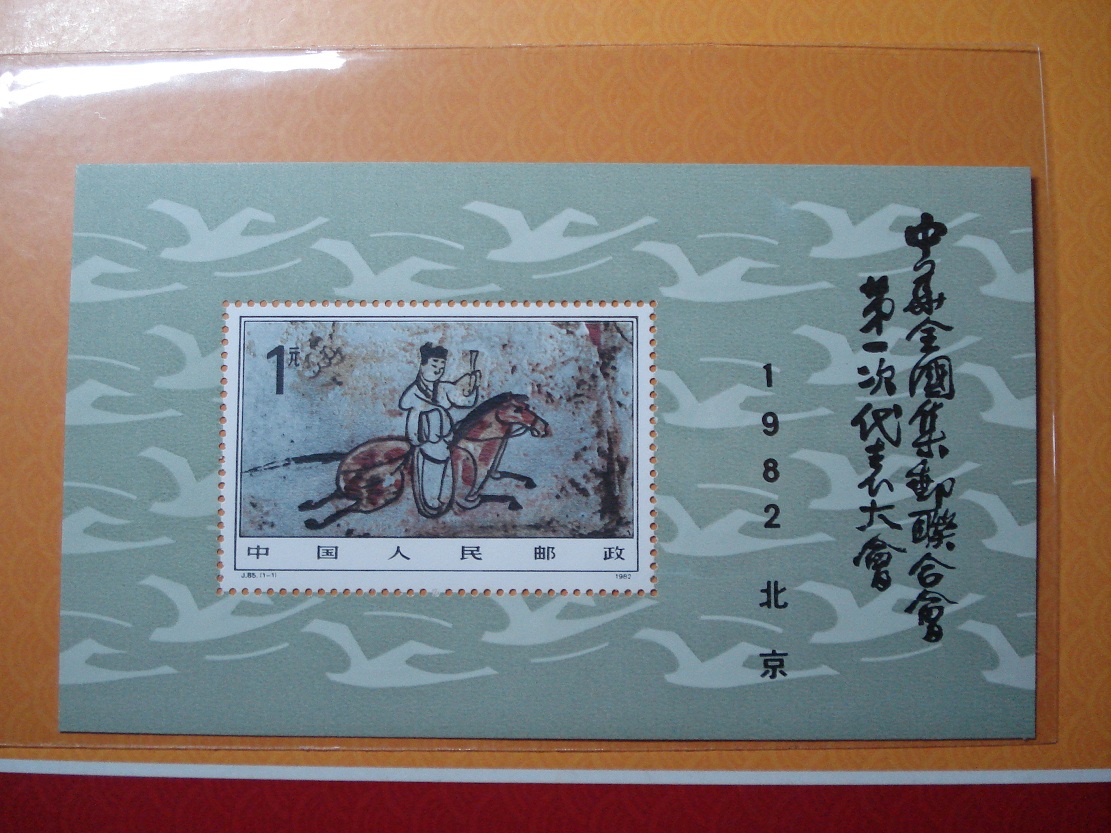 中華全國集郵聯合會
第一次代表大會
1982 北京
1元
中国人民邮政
J.85.(1-1)
1982